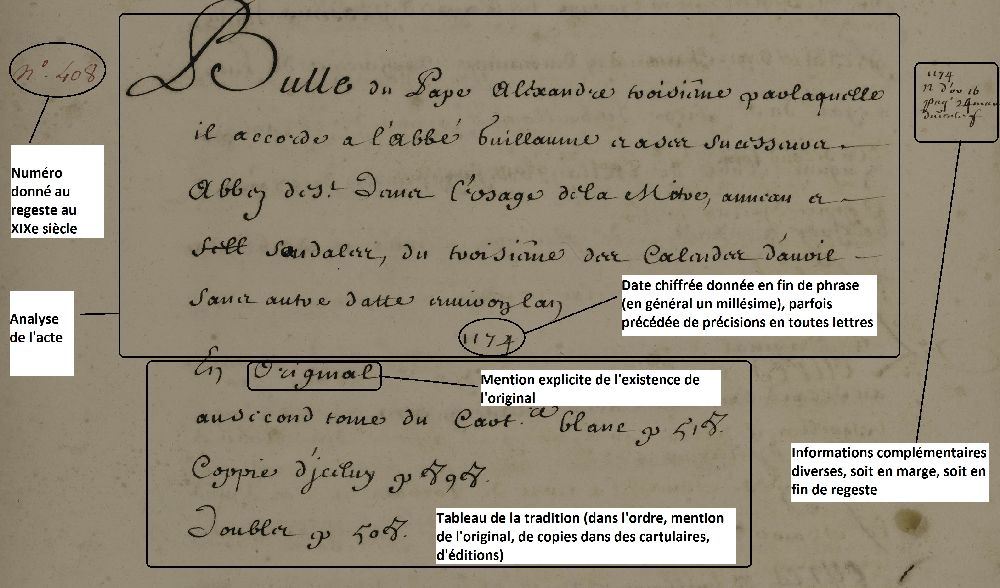 n.° 408
Bulle du Pape Alexandre troisième parlaquelle
il accorde a l'Abbé Guillaume et a ses successeurs
Abbez de st. Denis l'usage dela Mitre, anneau et
sell sandales, du troisième des Calendes d'avril
sans autre datte environ lan
1174
En Original
au second tome du Cart.re blanc p 518.
Coppie d'jceluy p 898.
Doubles p 508.
1174
n d'or 16
pag. 24
Numéro
donné au
regeste au
XIXe siècle
Analyse
de l'acte
Date chiffrée donnée en fin de phrase
(en général un millésime), parfois
précédée de précisions en toutes lettres
Mention explicite de l'existence de
l'original
Informations complémentaires
diverses, soit en marge, soit en
fin de regeste
Tableau de la tradition (dans l'ordre, mention
de l'original, de copies dans des cartulaires,
d'éditions)